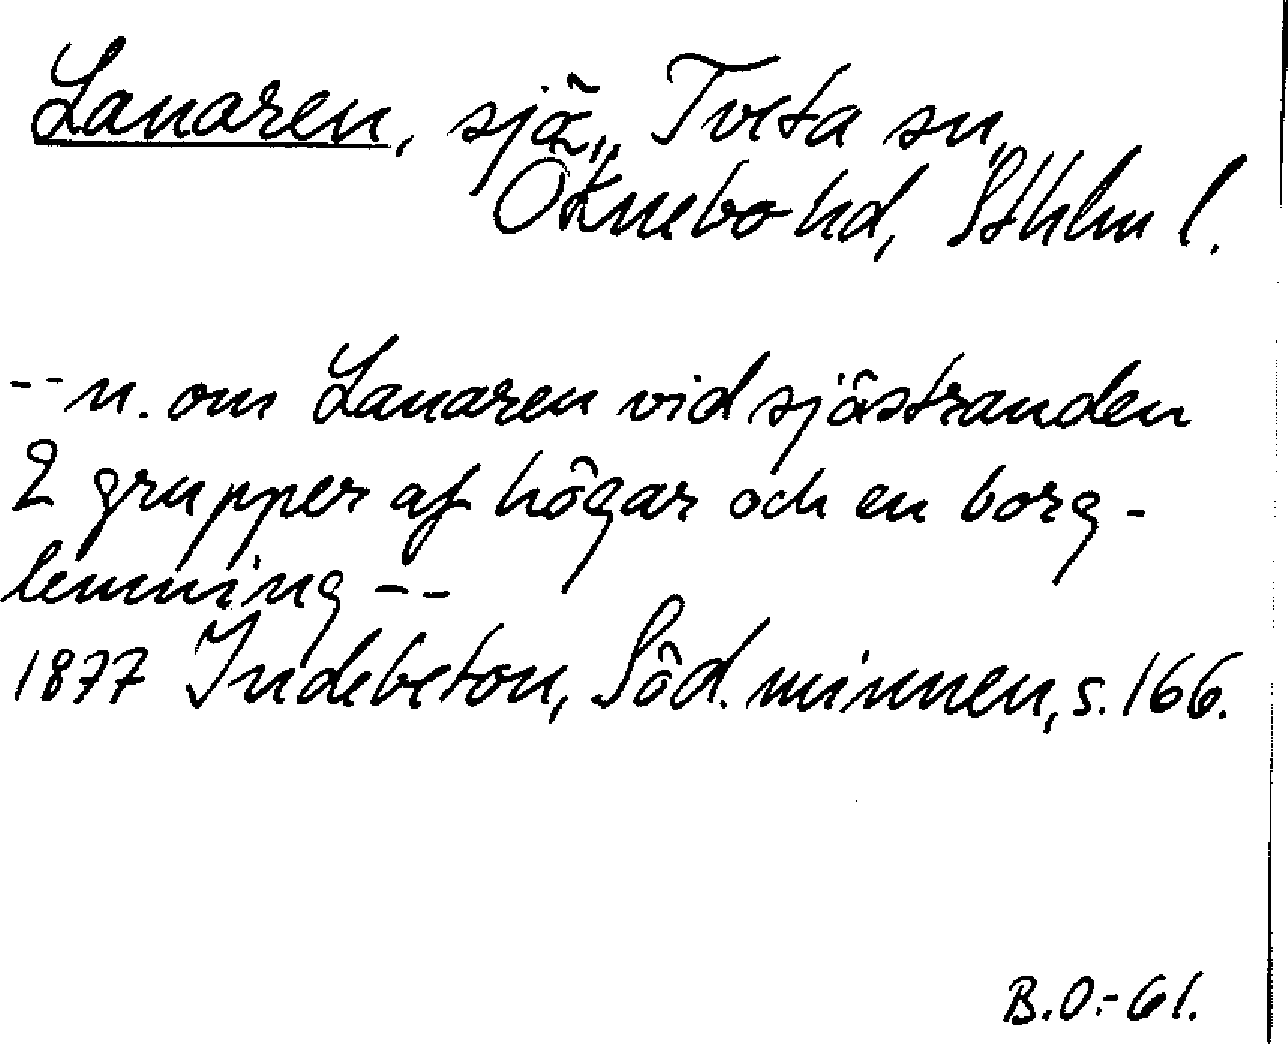 Lanaren, sjö, Tveta sn,
Öknebo hd, Sthlm l.
-- n. om Lanaren vid sjöstranden
2 grupper af högar och en borg-
lemning --
1877 Indebetou, Söd. minnen, s. 166.
B.O.-61.